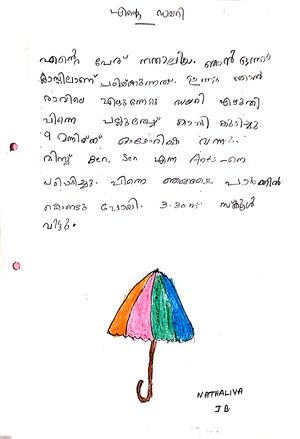 എന്റെ ഡയറി
എന്റെ പേര് നതാലിയ. ഞാൻ ഒന്നാം
ക്ലാസ്സിലാണ് പഠിക്കുന്നത്. ഇന്നു ഞാൻ
രാവിലെ എഴുന്നേറ്റു ഡയറി എഴുതി.
പിന്നെ പല്ലുതേച്ച് ചായ കുടിച്ചു.
9 മണിക്ക് ഓട്ടോറിക്ഷ വന്നു.
പഠിപ്പിച്ചു. പിന്നെ ഞങ്ങളെ പാർക്കിൽ
കൊണ്ടു പോയി. 3.30ന് സ്കൂൾ
വിട്ടു.
NATHALIYA
I B